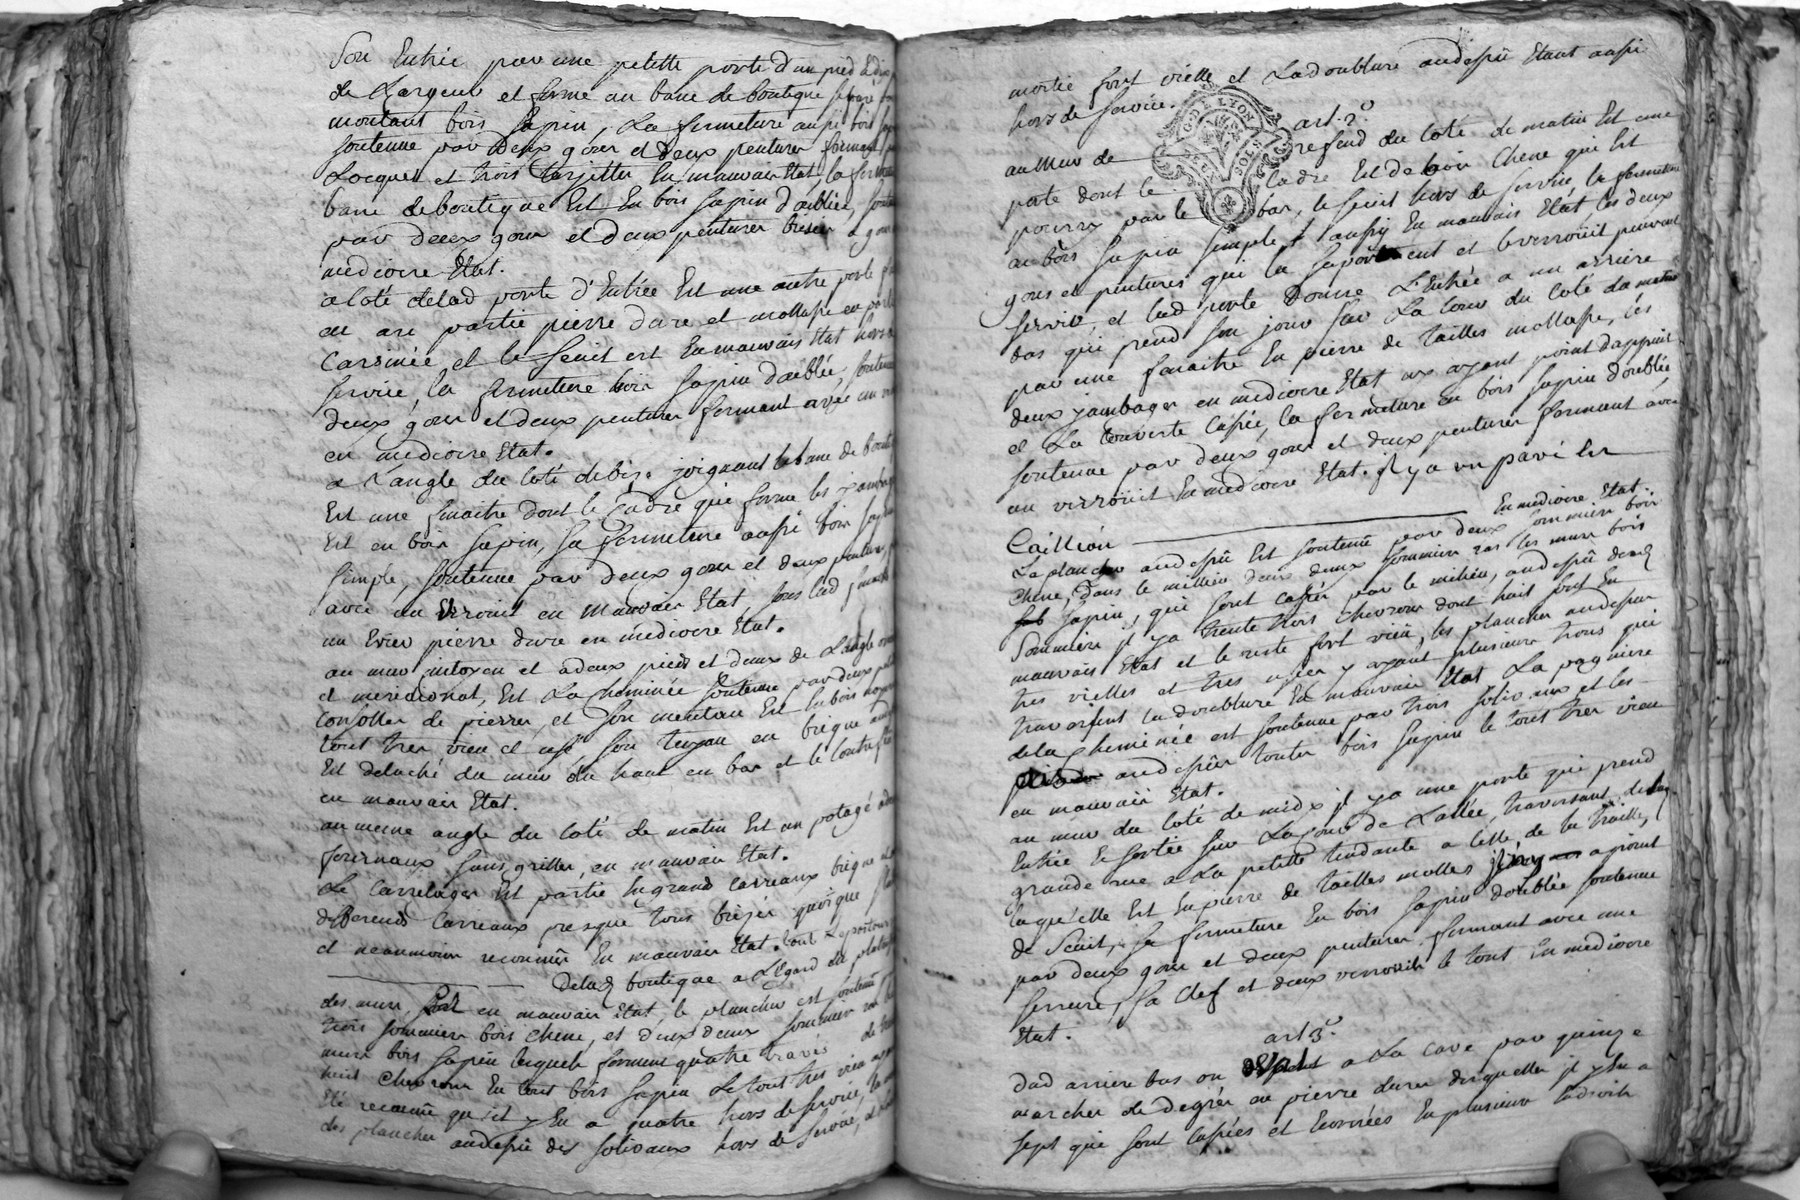 Son Entrée par une petitte porte d'un pied & dix
de Largeur et ferme au banc de boutique
montant bois sapin, La fermeture aussi bois
soutenue par deux gons et deux pentures formant
Locquet et trois targettes En mauvais Etat, la ferm
banc de boutique Est En bois sapin doublée, soute
par deux gons et deux pentures brisées
mediocre Etat.
a Coté delad porte d'Entrée Est une autre porte
en arc partie pierre dure et mollasse en partie
Carsinée et le Seuil est En mauvais Etat hors
service, la fermeture bois sapin doublée, soutenue
deux gons et deux pentures fermant avec un
en mediocre Etat.
a L'angle du Coté de bize joignant le banc de bouti
Est une fenaitre dont le Cadre que forme les jamba
Est en bois sapin, sa fermeture aussi bois sapin
simple, soutenue par deux gons et deux pentures,
avec un verrouil en mauvais Etat, sous lad fenait
un Evier pierre dure en mediocre Etat.
au mur mitoyen et a deux pieds et demi de L'angle
et meridional, Est La cheminée soutenue par deux
Consolles de pierres, et son menteau Est En bois noyer
tout tres vieu et usé son tuyau en brique
Est detaché du mur du haut en bas et le Contre
en mauvais Etat.
au meme angle du Coté de matin Est un potagé
fourneaux sans grilles, en mauvais Etat.
Le Carrelage Est partie En grands Carreaux brique
differends Carreaux presque tous brisés quoique
et neanmoins reconnus En mauvais Etat. tout
Delad boutique a L'Egard du platr
des murs, Est en mauvais Etat, le plancher est soutenu
trois sommiers bois chene, et deux deux sommiers
murs bois sapin lesquels forment quatre travées
huit Chevrons En tout bois sapin Le tout tres vieu
Eté reconnu qu'il y En a quatre hors de service,
des planches audessus des solivaux hors de service,
mortié fort vielle et La doublure audessus Etant aussi
hors de service.
G. DE LYON
SOLS
art. 2.
au Mur de refend du Coté de matin Est une
porte dont le Cadre Est de bois Chene qui Est
pourry par le bas, le seuil hors de service, la fermeture
en bois sapin simple aussy En mauvais Etat, les deux
gons et pentures qui la suportent et le verrouil peuvent
servir, et lad porte Donne L'Entrée a un arriere
bas qui prend son jour sur La Cour du Coté de matin
par une fenaitre En pierre de tailles mollasse, les
deux jambages en mediocre Etat ny ayant point d'appuit
et La Couverte Cassée, la fermeture en bois sapin doublée,
soutenue par deux gons et deux pentures fermant avec
un verrouil En mediocre Etat. il y a un pavé En
Cailliou En mediocre Etat.
La plancher audessus Est soutenu par deux sommiers bois
chene, dans le millieu deux deux sommiers ras les murs bois
sapin, qui sont Cassés par le milieu, audessus desd
Sommiers il y a trente trois chevrons dont huit sont En
mauvais Etat et le reste fort vieu, les planches audessus
tres vielles et tres usées y ayant plusieurs trous qui
traversent la doublure En mauvais Etat La pagniere
de la Cheminée est soutenue par trois solivaux et les
audessus toutes bois sapin le tout tres vieu
en mauvais Etat.
au mur du Coté de midy il y a une porte qui prend
Entrée & sortie sur La Cour de L'allée, traversant, de la
grande rue a La petitte tendante a Celle de la traille,
laquelle Est En pierre de tailles molles
de Seuil, sa fermeture En bois sapin doublée soutenue
par deux gons et deux pentures fermant avec une
serrure, sa Clef et deux verrouils le tout En mediocre
Etat.
art 3.
Dud arriere bas on descend a La Cave par quinze
marches de degrés en pierre dures desquelles il y En a
sept qui sont Cassées et Ecornées En plusieurs Endroits